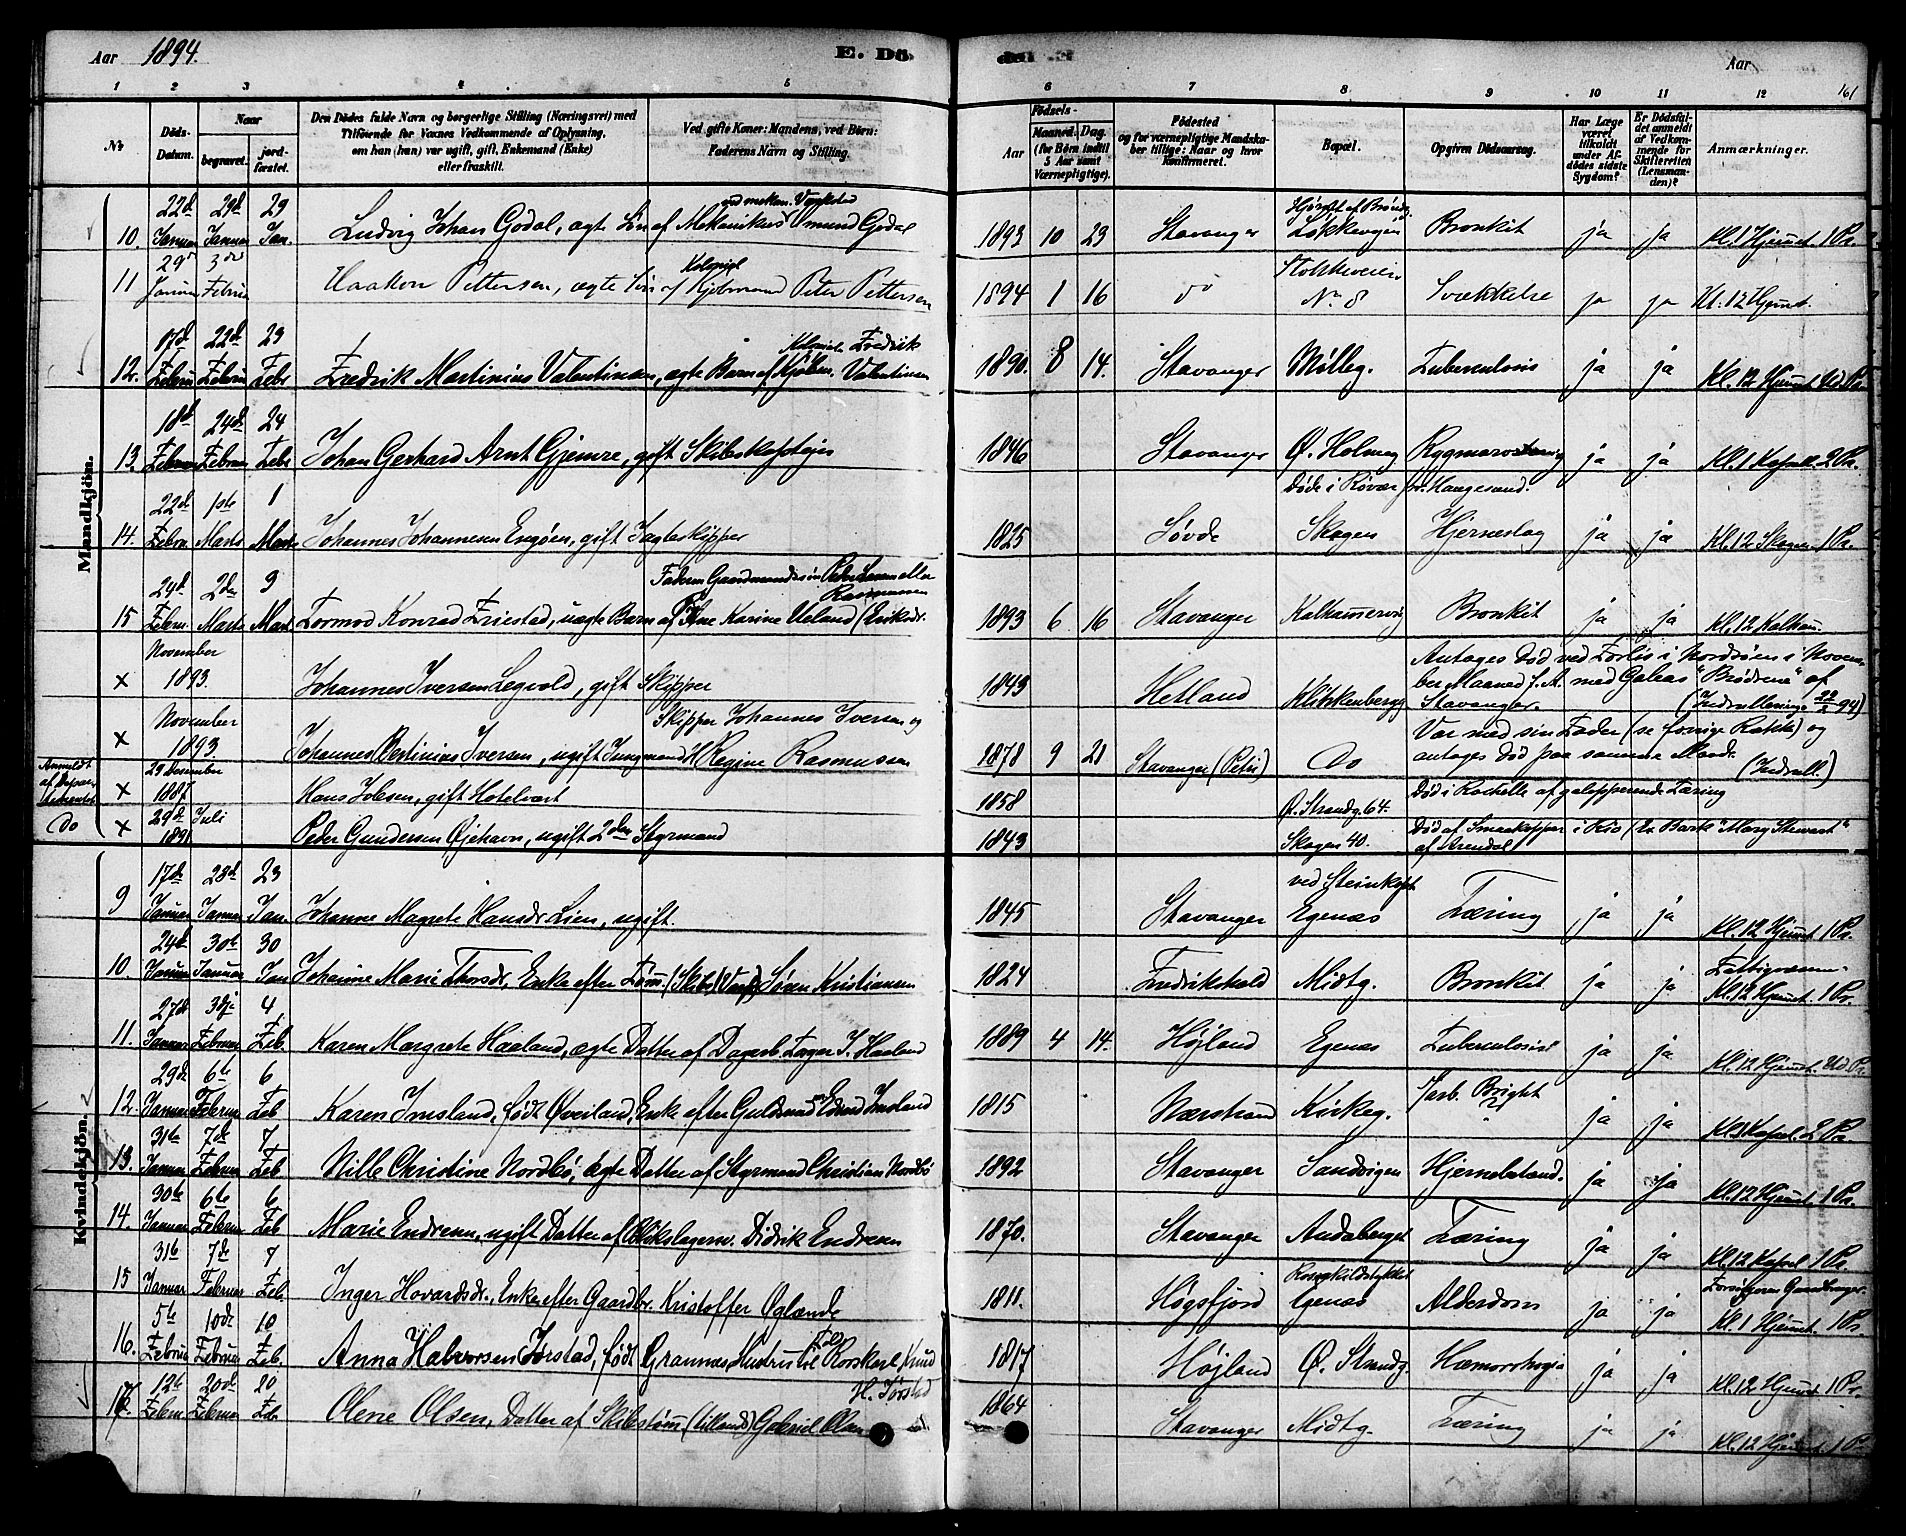 Aar 1894. E. Dö- de. Aar 161
1 2 3 4 5 6 7 8 9 10 11 12
No Döds-Datum. Naar begravet. jordfæstet. Den Dödes fulde Navn og borgerlige Stilling (Næringsvei) med Tilföiende for Voxnes Vedkommende af Oplysning, om han (hun) var ugift, gift, Enkemand (Enke) eller fraskilt. Ved gifte Koner: Mandens, ved Börn: Faderens Navn og Stilling. Födsels- Aar Maaned. Dag. (for Börn indtil 5 Aar samt Værnepligtige). Födested og for værnepligtige Mandskaber tillige: Naar og hvor Konfirmeret. Bopæl. Opgiven Dödsaarsag. Har Læge været tilkaldt under Afdödes sidste Sygdom? Er Dödsfaldet anmeldt af Vedkommende for Skifteretten (Lensmanden)? Anmærkninger.
Mandkjön.
10. 22de Januar 29de Januar 29 Jan. Ludvig Johan Godal, ægte Søn af Mekanikus ved mekan. Værksted Omund Godal 1893 10 23 Stavanger Løkkevegen Bronkit ja ja Kl. 1 Hjemmet 1 Pr.
11 29de Januar 3die Februar Haakon Pettersen, ægte Søn af Kolonial Kjøbmand Peter Pettersen 1894 1 16 do No 8 Svækkelse ja ja Kl. 12 Hjemmet.
12. 17de Februar 22de Februar 23 Febr. Fredrik Martinius Valentinsen, ægte Barn af Kolonial Kjøbm. Fredrik Valentinsen 1890. 8 14. Stavanger Mølleg. Tuberculosis ja ja Kl. 12 Hjemmet Ud. Pr.
13. 18de Februar 24de Februar 24 Febr. Johan Gerhard Arnt Gjemre, gift Skibskaptejn 1846 Stavanger Ø. Holmeg ja ja Kl. 1 Kapell. 2 Pr.
14. 22de Febru 1ste Marts 1 Marts Johannes Johannesen Engøen, gift Jagteskipper 1825 Søvde Skagen Døde i Røvær pr. Haugesund. Hjerneslag ja ja Kl. 12 Skagen 1 Pr.
15 24de Febru 2den Marts 3 Mart Tormod Konrad Friestad, uægte Barn af Pige Karine Ueland (Eriksdr. Faderen Gaardmandssøn Peder Larsen eller Rasmussen 1893 6 16 Stavanger Kalhammervig Bronkit ja ja Kl. 12 Kalham.
x November 1893. Johannes Iversen Legvold, gift Skipper 1843 Hetland Klinkenberg Antages Død ved Forlis i Nordsøen i November Maaned f. A. med Galeas "Brødrene" af Stavanger. (Indrulleringen 22/2 94)
x November 1893 Johannes Bertinius Iversen, ugift Jungmand Skipper Johannes Iversen og H Regine Rasmussen 1878 9 21 Stavanger (Petri) Do Var med sin Fader (se forrige Række) og antages Død paa samme Maade. (Indrull.)
Anmeldt af Departementet x 29 Desember 1887 Hans Jobsen, gift Hotelvært 1858 Ø. Strandg. 64. Død i Rochelle af galopperende Tæring
Do x 29de Juli 1891 Peder Gundersen Øjehavn, ugift 2den Styrmand 1843 Skagen 40. Død af Smaakopper i Rio (Ex Bark "Mary Stewart" af Arendal
Kvindekjön.
9 17de Januar 23de Januar 23 Jan. Johanne Magrete Hansdr Lien, ugift. 1845 Stavanger ved Steinkopf Egenæs Tæring ja ja Kl. 12 Hjemmet 1 Pr.
10. 24de Januar 30te Januar 30 Jan Johanne Marie Thorsdr, Enke efter Tømm. (Skibs) Søren Kristiansen 1824 Fredrikshald Midtg. Bronkit ja ja Fattigvæsen. Kl. 12 Hjemmet 1 Pr.
11. 27de Januar 3die Februar 4. Feb. Karen Margrete Haaland, ægte Datter af Dagarb. Tager J. Haaland 1889 4 14. Højland Egenæs Tuberculosis ja ja Kl. 12 Hjemmet Ud. Pr.
12. 29de Januar 6te Februar 6 Feb Karen Imsland, født Øveiland, Enke efter Guldsmed Imsland 1815 Nærstrand Kirkeg. Marb. Bright ja ja Kapel. 2 Pr.
13. 31te Januar 7de Februar 7 Feb Nille Christine Nordbø, ægte Datter af Styrmand Christian Nordbø 1892 Stavanger Sandvigen Hjernebetænd. ja ja Kl. 12 Hjemmet 1 Pr.
14. 30te Januar 6te Februar 6 Feb. Marie Endresen, ugift Datter af Blikslagerm. Didrik Endresen 1870. Stavanger Andaberget Tæring ja ja Kl. 12 Kapel 1 Pr.
15 31te Januar 7de Februar 7 Feb. Inger Hovardsdr., Enke efter Gaardbr. Kristoffer Oglænde 1811. Høgsfjord Rosenkildstykket Egenæs Alderdom ja ja Kl. 1 Hjemmet. 1 Pr.
16. 5te Februar 10de Februar 10 Feb. Anna Halvorsen Jørstad, født Grannæs, Hustru til Korskarl Knud H. Jørstad 1817 Højland Ø. Strandg. Hæmorrhagia ja ja Kl. 12 Hjemmet 1 Pr.
17. 12te Februar 20de Februar 20 Feb. Olene Olsen, Datter af Skibstømm. (Lilland) Gabriel Olsen 1864 Stavanger Midtg. Tæring ja ja Kl. 12 Hjemmet 1 Pr.